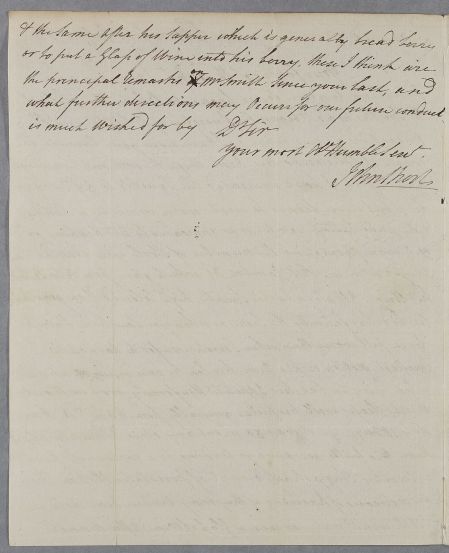 & the Same after his Supper which is generally bread berry
or to put a Glass of Wine into his berry, these I think are
the principal remarks on Mr Smith Since your last, and
what further directions may Occur for our future conduct
is much Wished for by Dr Sir
your most Obt Humble Sert.
John